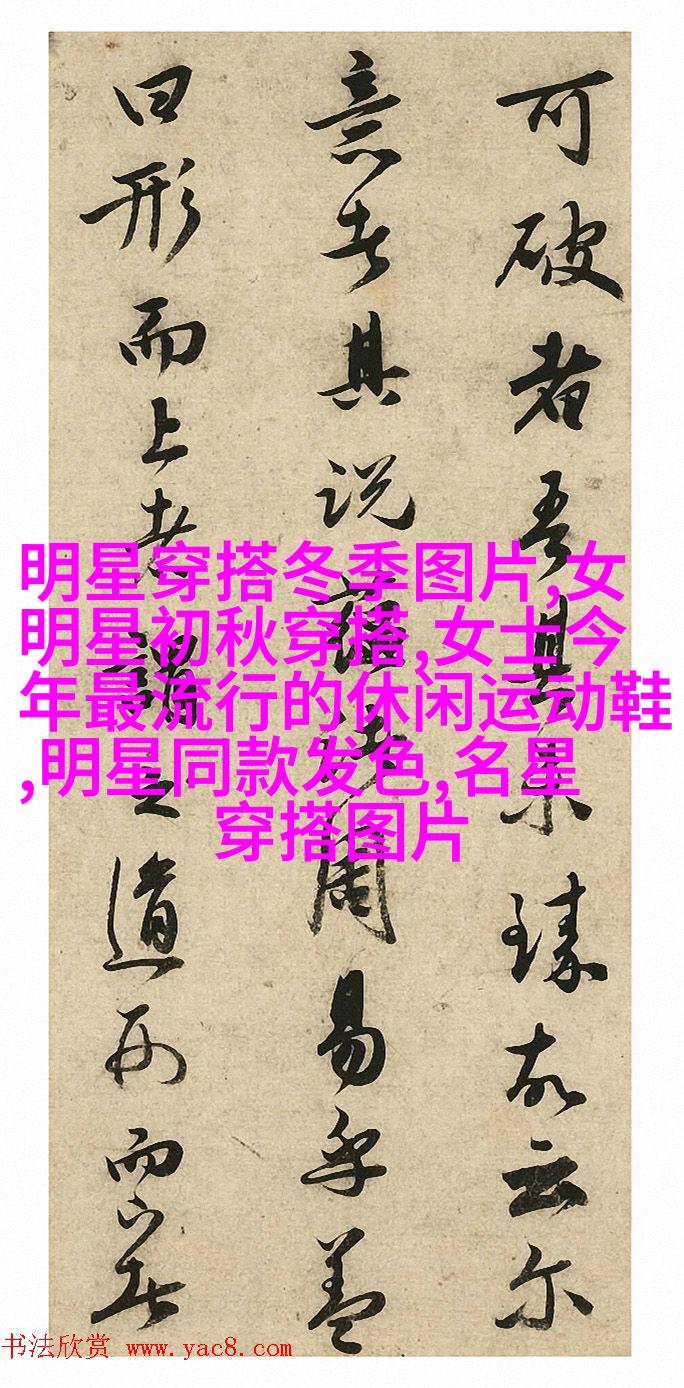 可破者吾其未臻故云尔
意者其说周易乎盖
曰形而上者謂之道形而下者
明星穿搭冬季图片,女
明星初秋穿搭,女士今
年最流行的休闲运动鞋
,明星同款发色,名星
穿搭图片
书法欣赏 www.yac8.com